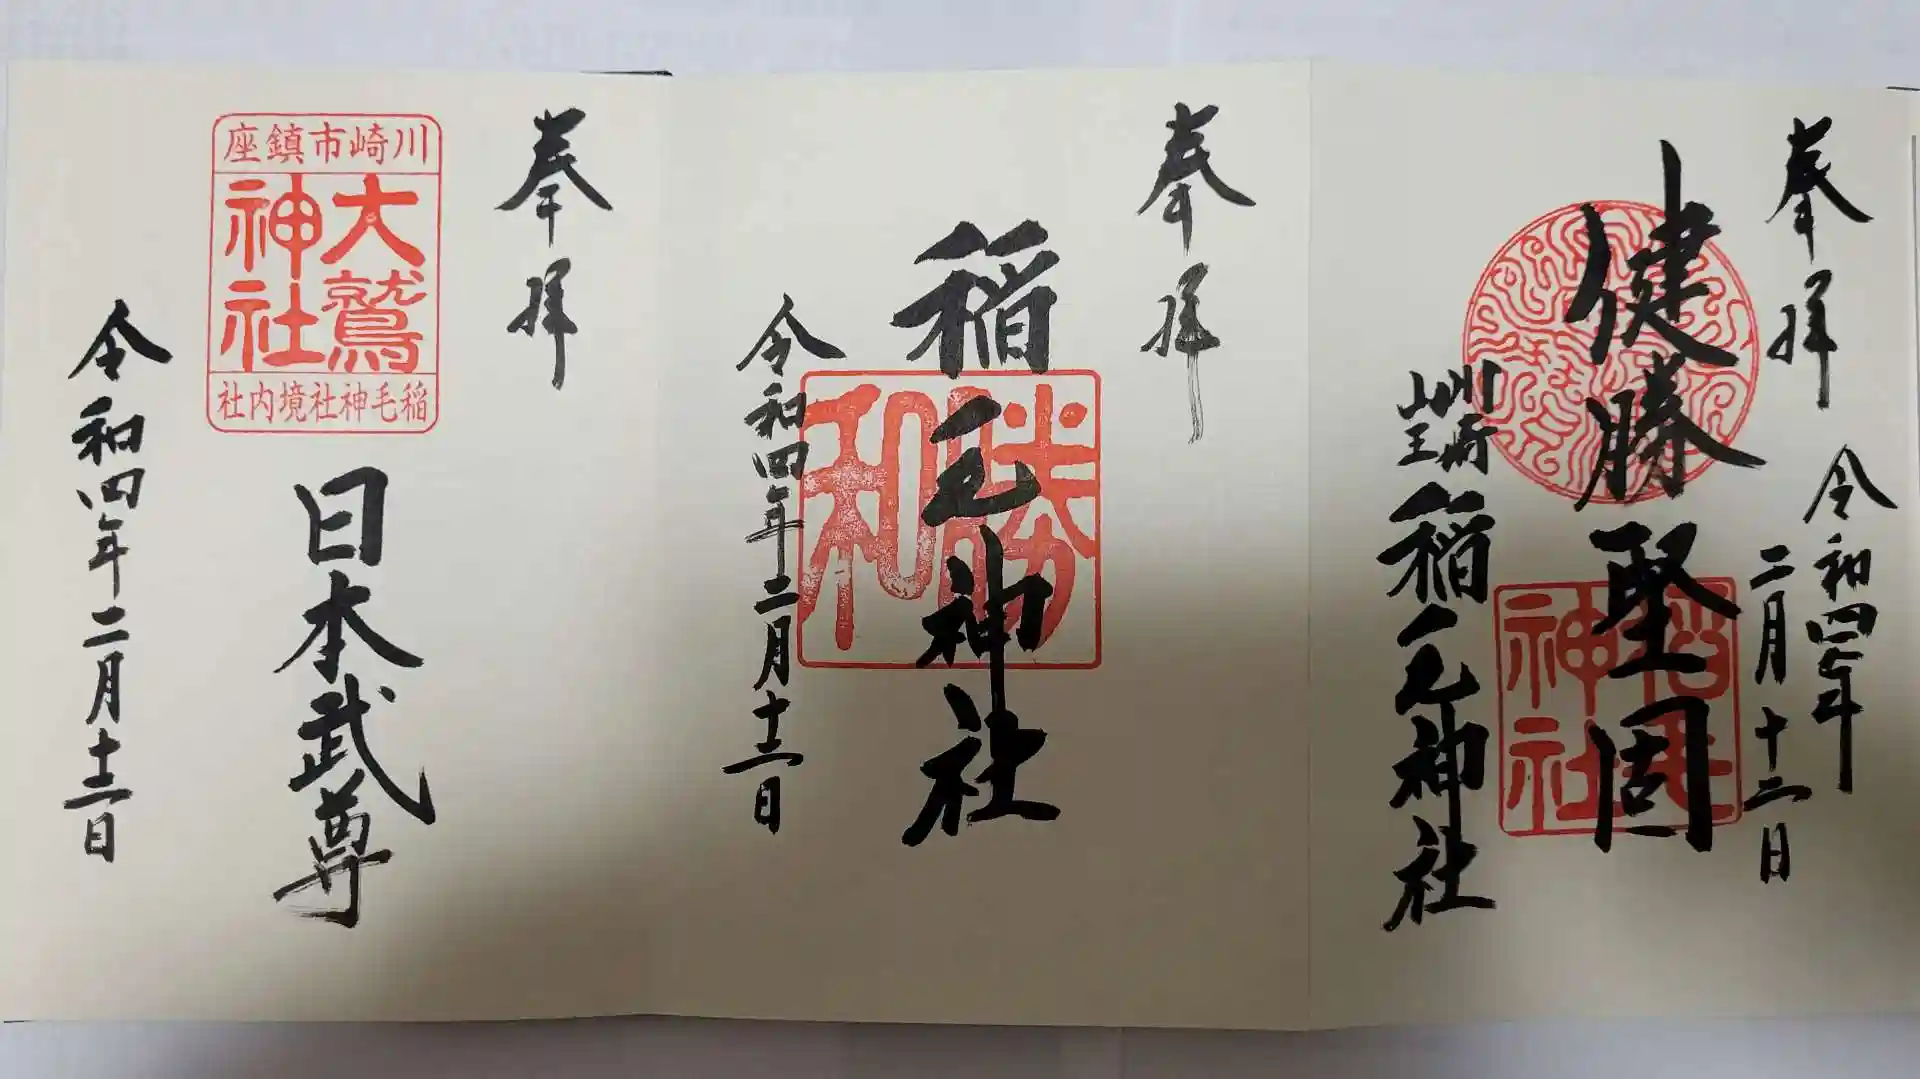 奉拝
令和四年
二月十二日
健勝堅固
川崎
山王
稲毛神社
稲毛
神社
奉拝
稲毛神社
勝和
令和四年二月十二日
奉拝
川崎市鎮座
大鷲
神社
稲毛神社境内社
日本武尊
令和四年二月十二日